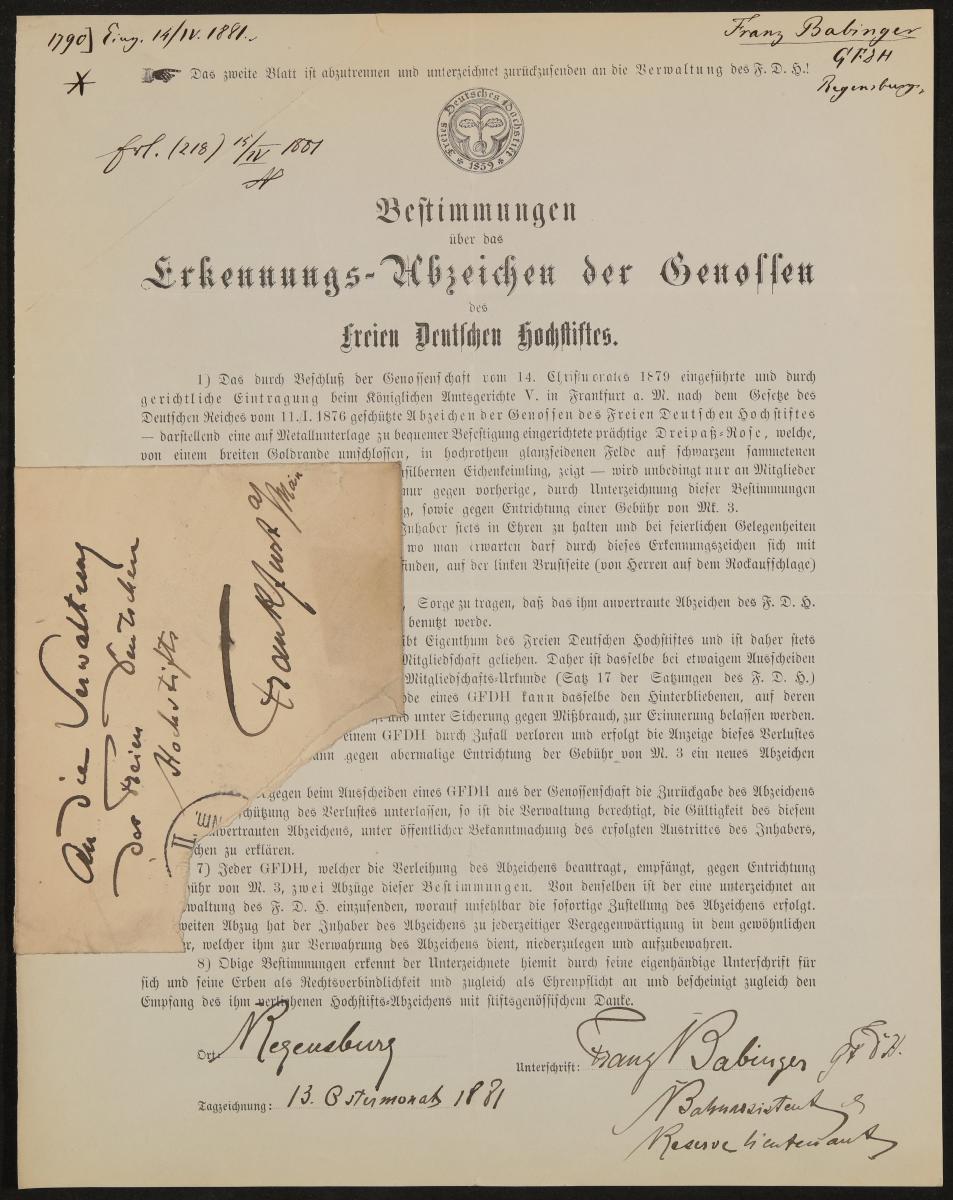 1790] Eing. 14/IV. 1881.
Franz Babinger
GFDH
Regensburg.
Das zweite Blatt ist abzutrennen und unterzeichnet zurückzusenden an die Verwaltung des F. D. H.!
Freies Deutsches Hochstift
* 1859 *
Erl. (218) 15/IV 1881
Bestimmungen
über das
Erkennungs-Abzeichen der Genossen
des
Freien Deutschen Hochstiftes.
1) Das durch Beschluß der Genossenschaft vom 14. Christmonates 1879 eingeführte und durch
gerichtliche Eintragung beim Königlichen Amtsgerichte V. in Frankfurt a. M. nach dem Gesetze des
Deutschen Reiches vom 11./I. 1876 geschützte Abzeichen der Genossen des Freien Deutschen Hochstiftes
— darstellend eine auf Metallunterlage zu bequemer Befestigung eingerichtete prächtige Dreipaß-Rose, welche,
von einem breiten Goldrande umschlossen, in hochrothem glanzseidenen Felde auf schwarzem sammetenen
silbernen Eichenkeimling, zeigt — wird unbedingt nur an Mitglieder
nur gegen vorherige, durch Unterzeichnung dieser Bestimmungen
g, sowie gegen Entrichtung einer Gebühr von Mk. 3.
Inhaber stets in Ehren zu halten und bei feierlichen Gelegenheiten
wo man erwarten darf durch dieses Erkennungszeichen sich mit
finden, auf der linken Brustseite (von Herren auf dem Rockaufschlage)
, Sorge zu tragen, daß das ihm anvertraute Abzeichen des F. D. H.
benutzt werde.
ibt Eigenthum des Freien Deutschen Hochstiftes und ist daher stets
Mitgliedschaft geliehen. Daher ist dasselbe bei etwaigem Ausscheiden
Mitgliedschafts-Urkunde (Satz 17 der Satzungen des F. D. H.)
ode eines GFDH kann dasselbe den Hinterbliebenen, auf deren
und unter Sicherung gegen Mißbrauch, zur Erinnerung belassen werden.
einem GFDH durch Zufall verloren und erfolgt die Anzeige dieses Verlustes
ann gegen abermalige Entrichtung der Gebühr von M. 3 ein neues Abzeichen
gegen beim Ausscheiden eines GFDH aus der Genossenschaft die Zurückgabe des Abzeichens
schützung des Verlustes unterlassen, so ist die Verwaltung berechtigt, die Gültigkeit des diesem
nvertrauten Abzeichens, unter öffentlicher Bekanntmachung des erfolgten Austrittes des Inhabers,
chen zu erklären.
7) Jeder GFDH, welcher die Verleihung des Abzeichens beantragt, empfängt, gegen Entrichtung
ühr von M. 3, zwei Abzüge dieser Bestimmungen. Von denselben ist der eine unterzeichnet an
waltung des F. D. H. einzusenden, worauf unfehlbar die sofortige Zustellung des Abzeichens erfolgt.
weiten Abzug hat der Inhaber des Abzeichens zu jederzeitiger Vergegenwärtigung in dem gewöhnlichen
r, welcher ihm zur Verwahrung des Abzeichens dient, niederzulegen und aufzubewahren.
8) Obige Bestimmungen erkennt der Unterzeichnete hiemit durch seine eigenhändige Unterschrift für
sich und seine Erben als Rechtsverbindlichkeit und zugleich als Ehrenpflicht an und bescheinigt zugleich den
Empfang des ihm verliehenen Hochstifts-Abzeichens mit stiftsgenössischem Danke.
Ort: Regensburg
Unterschrift: Franz Babinger GFDH.
Tagzeichnung: 13. Ostermonats 1881
Bahnassistent &
Reservelieutenant
An die Verwaltung
des Freien Deutschen
Hochstifts
Frankfurt a/Main
II. NM.